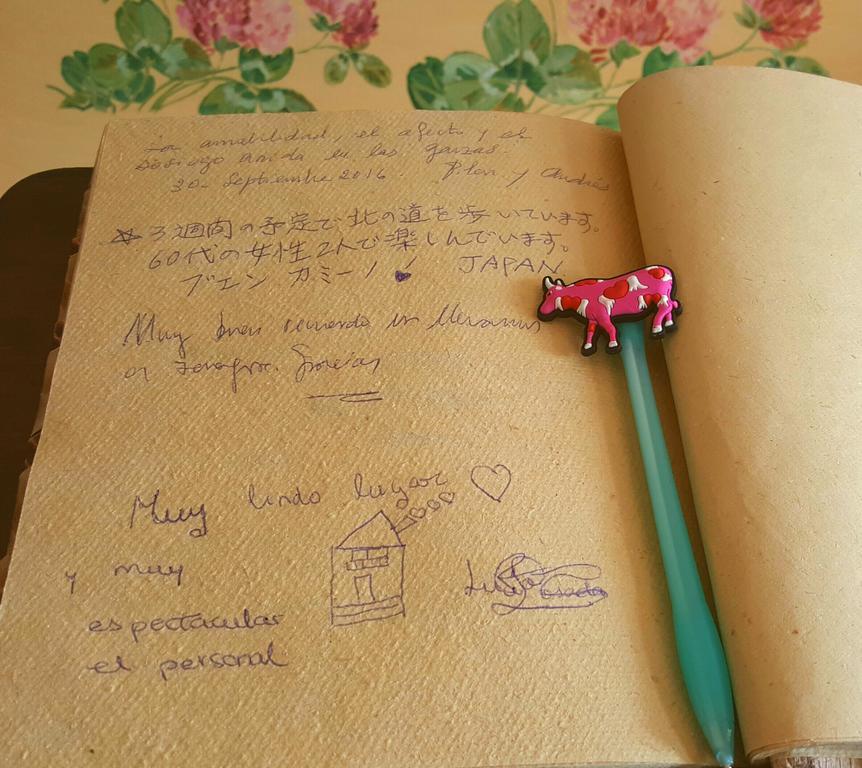 La amabilidad, el afecto y el
sosiego anida en las garzas.
30 Septiembre 2016. Pilar y Andrés
3週間の予定で北の道を歩いています。
60代の女性2人で楽しんでいます。
ブエン カミーノ! JAPAN
Muy buen recuerdo nos llevamos
Gracias
Muy lindo lugar
y muy
espectacular
el personal